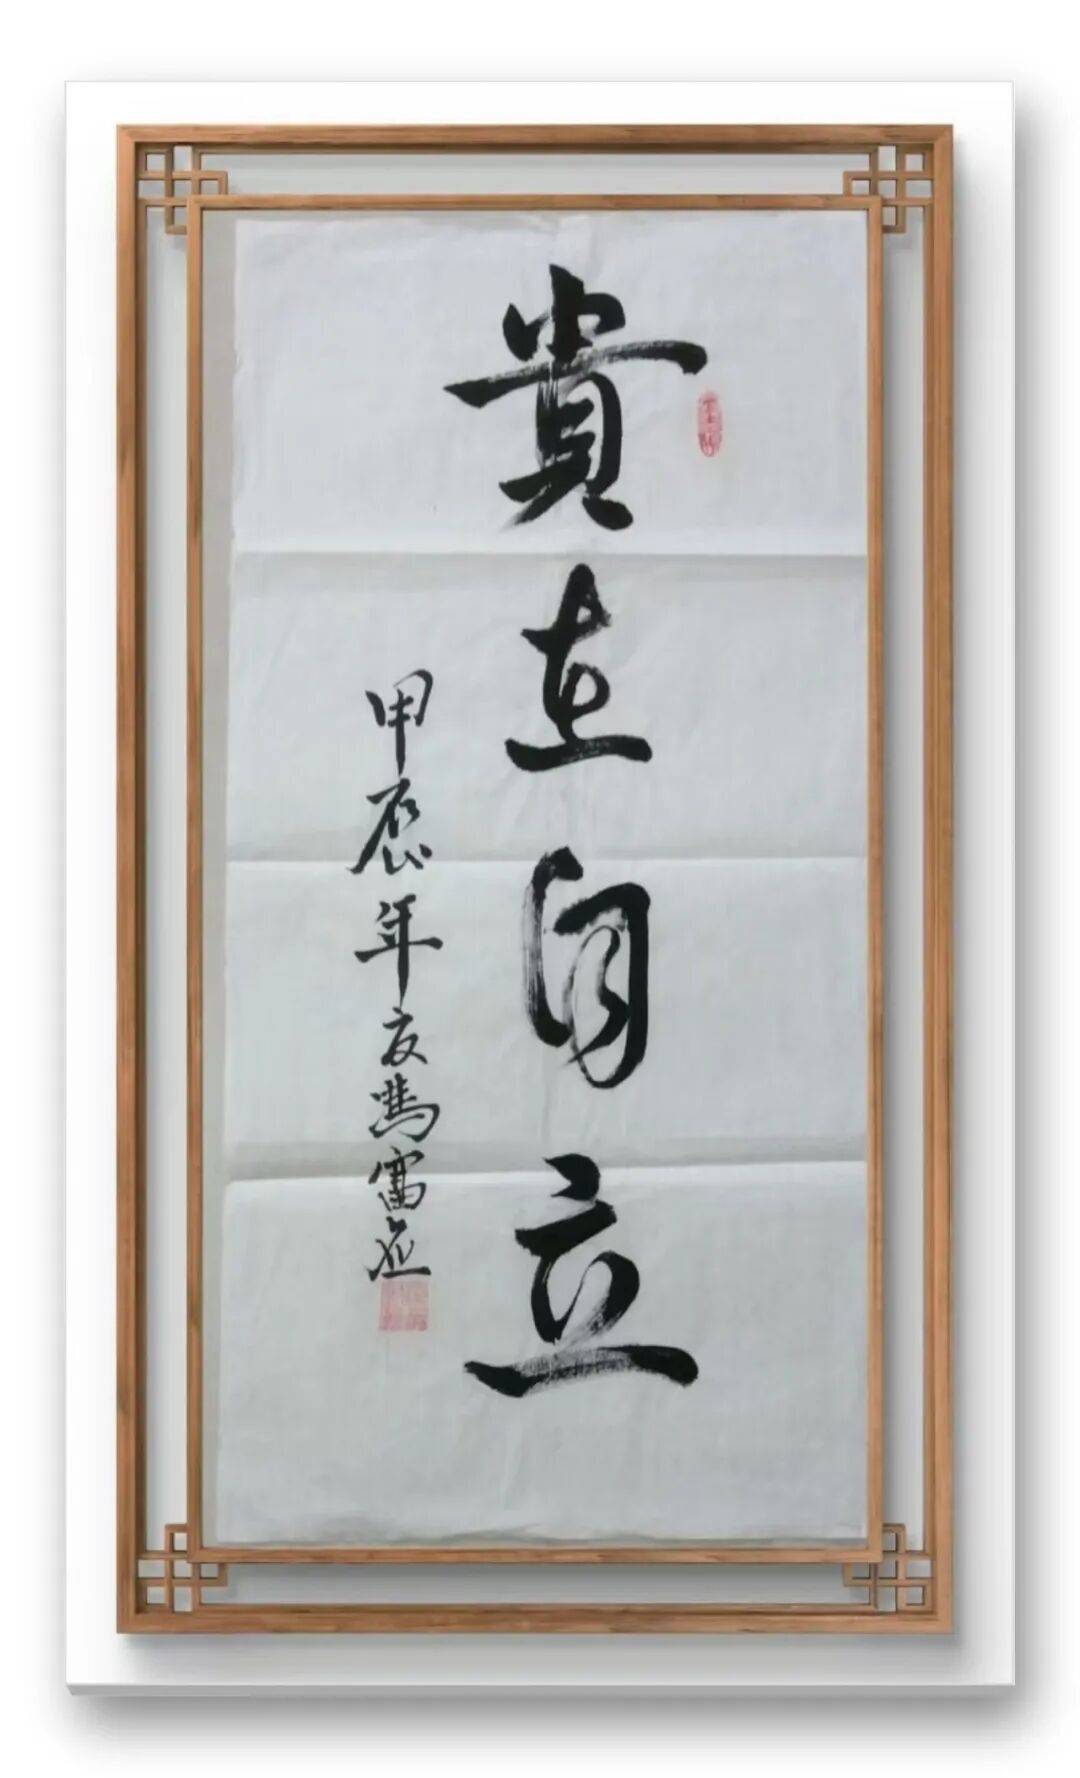 貴在自立
甲辰年友馮富